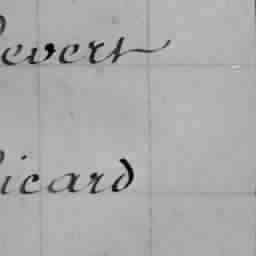 evert
icard